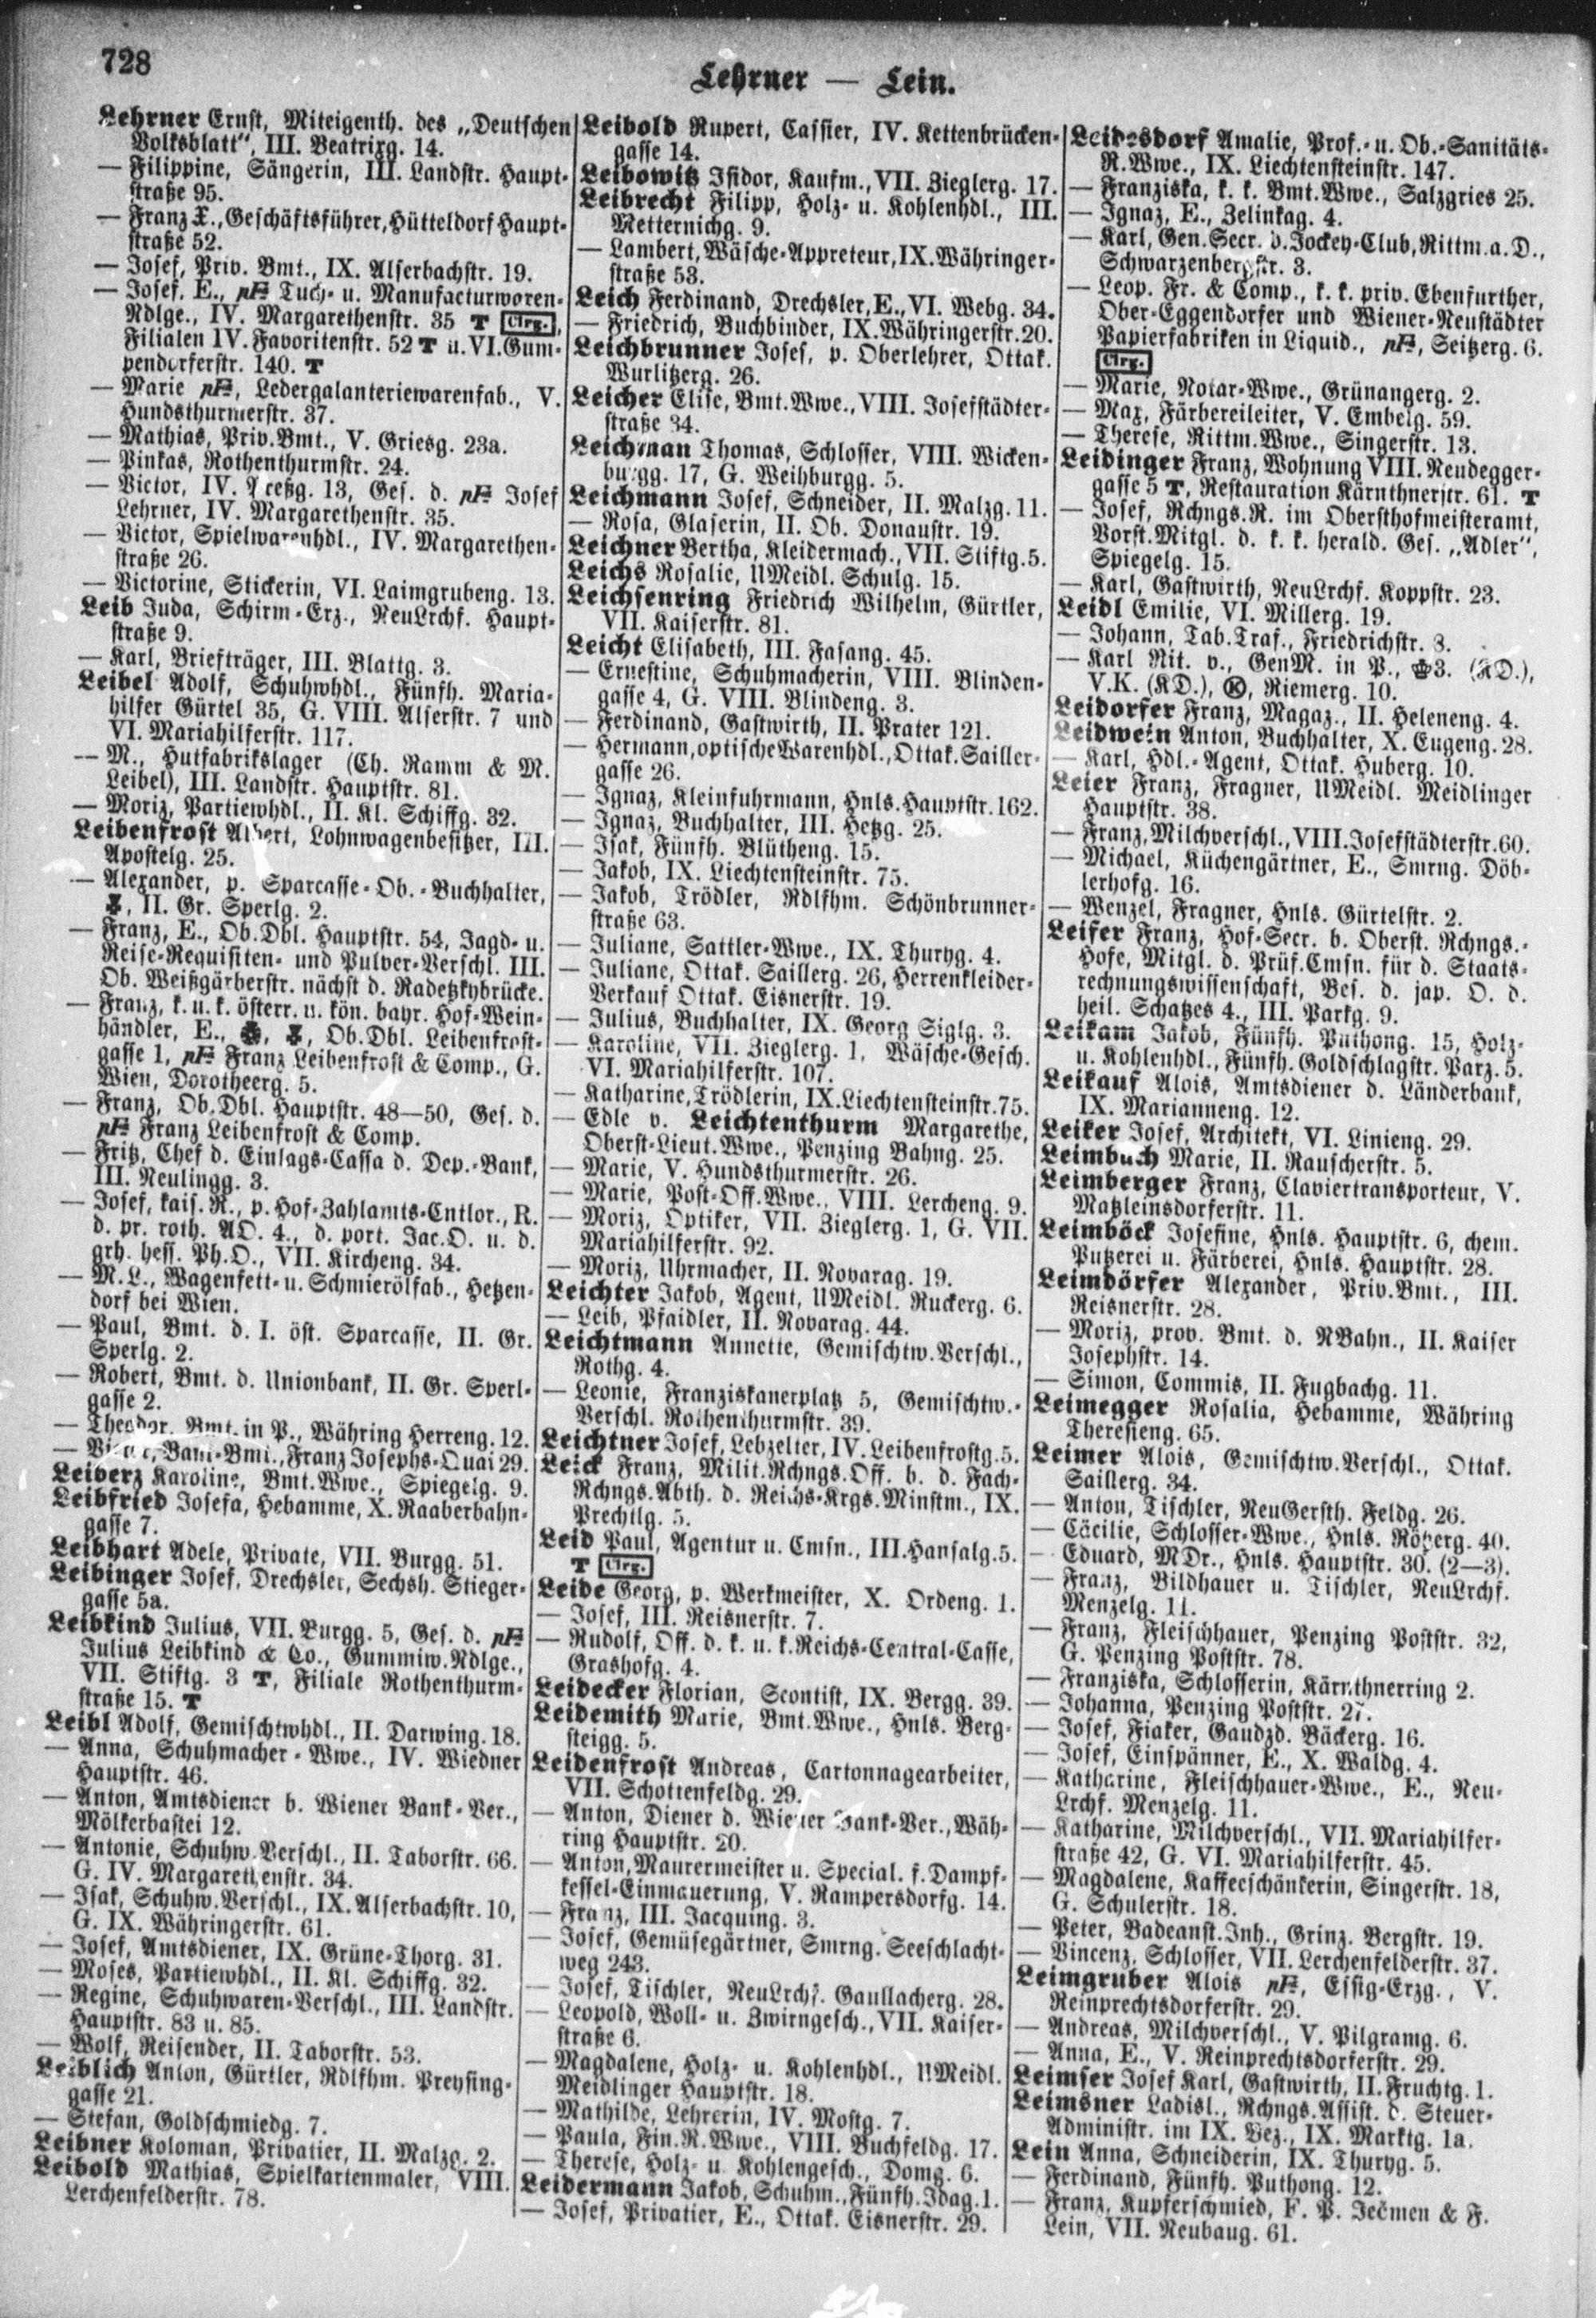 728
Lehrner — Lein.
Lehrner Ernst, Miteigenth. des „Deutschen
Volksblatt“, III. Beatrixg. 14.
— Filippine, Sängerin, III. Landstr. Haupt-
straße 95.
— Franz X., Geschäftsführer, Hütteldorf Haupt-
straße 52.
— Josef, Priv. Bmt., IX. Alserbachstr. 19.
— Josef, E., Tuch- u. Manufacturwaren-
Ndlge., IV. Margarethenstr. 35 T Clrg.,
Filialen IV. Favoritenstr. 52 T u. VI. Gum-
pendorferstr. 140. T
— Marie, Ledergalanteriewarenfab., V.
Hundsthurmerstr. 37.
— Mathias, Priv.Bmt., V. Griesg. 23a.
— Pinkas, Rothenthurmstr. 24.
— Victor, IV. Preßg. 13, Ges. d. Josef
Lehrner, IV. Margarethenstr. 35.
— Victor, Spielwarenhdl., IV. Margarethen-
straße 26.
— Victorine, Stickerin, VI. Laimgrubeng. 13.
Leib Juda, Schirm-Erz., NeuLrchf. Haupt-
straße 9.
— Karl, Briefträger, III. Blattg. 3.
Leibel Adolf, Schuhwhdl., Fünfh. Maria-
hilfer Gürtel 35, G. VIII. Alserstr. 7 und
VI. Mariahilferstr. 117.
— M., Hutfabrikslager (Ch. Ramm & M.
Leibel), III. Landstr. Hauptstr. 81.
— Moriz, Partiewhdl., II. Kl. Schiffg. 32.
Leibenfrost Albert, Lohnwagenbesitzer, III.
Apostelg. 25.
— Alexander, p. Sparcasse-Ob.-Buchhalter,
, II. Gr. Sperlg. 2.
— Franz, E., Ob.Dbl. Hauptstr. 54, Jagd- u.
Reise-Requisiten- und Pulver-Verschl. III.
Ob. Weißgärberstr. nächst d. Radetzkybrücke.
— Franz, k. u. k. österr. u. kön. bayr. Hof-Wein-
händler, E., Ob.Dbl. Leibenfrost-
gasse 1, Franz Leibenfrost & Comp., G.
Wien, Dorotheerg. 5.
— Franz, Ob.Dbl. Hauptstr. 48—50, Ges. d.
Franz Leibenfrost & Comp.
— Fritz, Chef d. Einlags-Cassa d. Dep.-Bank,
III. Neulingg. 3.
— Josef, kais. R., p. Hof-Zahlamts-Cntlor., R.
d. pr. roth. AO. 4., d. port. Jac.O. u. d.
grh. hess. Ph.O., VII. Kircheng. 34.
— M.L., Wagenfett- u. Schmierölfab., Hetzen-
dorf bei Wien.
— Paul, Bmt. d. I. öst. Sparcasse, II. Gr.
Sperlg. 2.
— Robert, Bmt. d. Unionbank, II. Gr. Sperl-
gasse 2.
— Theodor, Bmt. in P., Währing Herreng. 12.
— Bank-Bmt., Franz Josephs-Quai 29.
Leiberz Karoline, Bmt.Wwe., Spiegelg. 9.
Leibfried Josefa, Hebamme, X. Raaberbahn-
gasse 7.
Leibhart Adele, Private, VII. Burgg. 51.
Leibinger Josef, Drechsler, Sechsh. Stieger-
gasse 5a.
Leibkind Julius, VII. Burgg. 5, Ges. d.
Julius Leibkind & Co., Gummiw.Ndlge.,
VII. Stiftg. 3 T, Filiale Rothenthurm-
straße 15. T
Leibl Adolf, Gemischtwhdl., II. Darwing. 18.
— Anna, Schuhmacher-Wwe., IV. Wiedner
Hauptstr. 46.
— Anton, Amtsdiener b. Wiener Bank-Ver.,
Mölkerbastei 12.
— Antonie, Schuhw.Verschl., II. Taborstr. 66.
G. IV. Margarethenstr. 34.
— Isak, Schuhw.Verschl., IX. Alserbachstr. 10,
G. IX. Währingerstr. 61.
— Josef, Amtsdiener, IX. Grüne-Thorg. 31.
— Moses, Partiewhdl., II. Kl. Schiffg. 32.
— Regine, Schuhwaren-Verschl., III. Landstr.
Hauptstr. 83 u. 85.
— Wolf, Reisender, II. Taborstr. 53.
Leiblich Anton, Gürtler, Rdlfhm. Preysing-
gasse 21.
— Stefan, Goldschmiedg. 7.
Leibner Koloman, Privatier, II. Malzg. 2.
Leibold Mathias, Spielkartenmaler, VIII.
Lerchenfelderstr. 78.
Leibold Rupert, Cassier, IV. Kettenbrücken-
gasse 14.
Leibowitz Isidor, Kaufm., VII. Zieglerg. 17.
Leibrecht Filipp, Holz- u. Kohlenhdl., III.
Metternichg. 9.
— Lambert, Wäsche-Appreteur, IX. Währinger-
straße 53.
Leich Ferdinand, Drechsler, E., VI. Webg. 34.
— Friedrich, Buchbinder, IX. Währingerstr. 20.
Leichbrunner Josef, p. Oberlehrer, Ottak.
Wurlitzerg. 26.
Leicher Elise, Bmt.Wwe., VIII. Josefstädter-
straße 34.
Leichman Thomas, Schlosser, VIII. Wicken-
burgg. 17, G. Weihburgg. 5.
Leichmann Josef, Schneider, II. Malzg. 11.
— Rosa, Glaserin, II. Ob. Donaustr. 19.
Leichner Bertha, Kleidermach., VII. Stiftg. 5.
Leichs Rosalie, UMeidl. Schulg. 15.
Leichsenring Friedrich Wilhelm, Gürtler,
VII. Kaiserstr. 81.
Leicht Elisabeth, III. Fasang. 45.
— Ernestine, Schuhmacherin, VIII. Blinden-
gasse 4, G. VIII. Blindeng. 3.
— Ferdinand, Gastwirth, II. Prater 121.
— Hermann, optische Warenhdl., Ottak. Sailler-
gasse 26.
— Ignaz, Kleinfuhrmann, Hnls. Hauptstr. 162.
— Ignaz, Buchhalter, III. Hetzg. 25.
— Isak, Fünfh. Blütheng. 15.
— Jakob, IX. Liechtensteinstr. 75.
— Jakob, Trödler, Rdlfhm. Schönbrunner-
straße 63.
— Juliane, Sattler-Wwe., IX. Thuryg. 4.
— Juliane, Ottak. Saillerg. 26, Herrenkleider-
Verkauf Ottak. Eisnerstr. 19.
— Julius, Buchhalter, IX. Georg Siglg. 3.
— Karoline, VII. Zieglerg. 1, Wäsche-Gesch.
VI. Mariahilferstr. 107.
— Katharine, Trödlerin, IX. Liechtensteinstr. 75.
— Edle v. Leichtenthurm Margarethe,
Oberst-Lieut.Wwe., Penzing Bahng. 25.
— Marie, V. Hundsthurmerstr. 26.
— Marie, Post-Off.Wwe., VIII. Lercheng. 9.
— Moriz, Optiker, VII. Zieglerg. 1, G. VII.
Mariahilferstr. 92.
— Moriz, Uhrmacher, II. Novarag. 19.
Leichter Jakob, Agent, UMeidl. Ruckerg. 6.
— Leib, Pfaidler, II. Novarag. 44.
Leichtmann Annette, Gemischtw.Verschl.,
Rothg. 4.
— Leonie, Franziskanerplatz 5, Gemischtw.-
Verschl. Rothenthurmstr. 39.
Leichtner Josef, Lebzelter, IV. Leibenfrostg. 5.
Leick Franz, Milit.Rchngs.Off. b. d. Fach-
Rchngs.Abth. d. Reichs-Krgs.Minstm., IX.
Prechtlg. 5.
Leid Paul, Agentur u. Cmsn., III. Hansalg. 5.
T Clrg.
Leide Georg, p. Werkmeister, X. Ordeng. 1.
— Josef, III. Reisnerstr. 7.
— Rudolf, Off. d. k. u. k. Reichs-Central-Casse,
Grashofg. 4.
Leidecker Florian, Scontist, IX. Bergg. 39.
Leidemith Marie, Bmt.Wwe., Hnls. Berg-
steigg. 5.
Leidenfrost Andreas, Cartonnagearbeiter,
VII. Schottenfeldg. 29.
— Anton, Diener d. Wiener Bank-Ver., Wäh-
ring Hauptstr. 20.
— Anton, Maurermeister u. Special. f. Dampf-
kessel-Einmauerung, V. Rampersdorfg. 14.
— Franz, III. Jacquing. 3.
— Josef, Gemüsegärtner, Smrng. Seeschlacht-
weg 243.
— Josef, Tischler, NeuLrchf. Gaullacherg. 28.
— Leopold, Woll- u. Zwirngesch., VII. Kaiser-
straße 6.
— Magdalene, Holz- u. Kohlenhdl., UMeidl.
Meidlinger Hauptstr. 18.
— Mathilde, Lehrerin, IV. Mostg. 7.
— Paula, Fin.R.Wwe., VIII. Buchfeldg. 17.
— Therese, Holz- u. Kohlengesch., Domg. 6.
Leidermann Jakob, Schuhm., Fünfh. Idag. 1.
— Josef, Privatier, E., Ottak. Eisnerstr. 29.
Leidesdorf Amalie, Prof.- u. Ob.-Sanitäts-
R.Wwe., IX. Liechtensteinstr. 147.
— Franziska, k. k. Bmt.Wwe., Salzgries 25.
— Ignaz, E., Zelinkag. 4.
— Karl, Gen.Secr. d. Jockey-Club, Rittm. a. D.,
Schwarzenbergstr. 3.
— Leop. Fr. & Comp., k. k. priv. Ebenfurther,
Ober-Eggendorfer und Wiener-Neustädter
Papierfabriken in Liquid., Seitzerg. 6.
Clrg.
— Marie, Notar-Wwe., Grünangerg. 2.
— Max, Färbereileiter, V. Embelg. 59.
— Therese, Rittm.Wwe., Singerstr. 13.
Leidinger Franz, Wohnung VIII. Neudegger-
gasse 5 T, Restauration Kärnthnerstr. 61. T
— Josef, Rchngs.R. im Obersthofmeisteramt,
Vorst.Mitgl. d. k. k. herald. Ges. „Adler“,
Spiegelg. 15.
— Karl, Gastwirth, NeuLrchf. Koppstr. 23.
Leidl Emilie, VI. Millerg. 19.
— Johann, Tab.Traf., Friedrichstr. 8.
— Karl Rit. v., GenM. in P., 3. (KD.),
V.K. (KD.), Ⓚ, Riemerg. 10.
Leidorfer Franz, Magaz., II. Heleneng. 4.
Leidwein Anton, Buchhalter, X. Eugeng. 28.
— Karl, Hdl.-Agent, Ottak. Huberg. 10.
Leier Franz, Fragner, UMeidl. Meidlinger
Hauptstr. 38.
— Franz, Milchverschl., VIII. Josefstädterstr. 60.
— Michael, Küchengärtner, E., Smrng. Döb-
lerhofg. 16.
— Wenzel, Fragner, Hnls. Gürtelstr. 2.
Leifer Franz, Hof-Secr. b. Oberst. Rchngs.-
Hofe, Mitgl. d. Prüf.Cmsn. für d. Staats-
rechnungswissenschaft, Bes. d. jap. O. d.
heil. Schatzes 4., III. Parkg. 9.
Leikam Jakob, Fünfh. Puthong. 15, Holz-
u. Kohlenhdl., Fünfh. Goldschlagstr. Parz. 5.
Leikauf Alois, Amtsdiener d. Länderbank,
IX. Marianneng. 12.
Leiker Josef, Architekt, VI. Linieng. 29.
Leimbuch Marie, II. Rauscherstr. 5.
Leimberger Franz, Claviertransporteur, V.
Matzleinsdorferstr. 11.
Leimböck Josefine, Hnls. Hauptstr. 6, chem.
Putzerei u. Färberei, Hnls. Hauptstr. 28.
Leimdörfer Alexander, Priv.Bmt., III.
Reisnerstr. 28.
— Moriz, prov. Bmt. d. NBahn., II. Kaiser
Josephstr. 14.
— Simon, Commis, II. Fugbachg. 11.
Leimegger Rosalia, Hebamme, Währing
Theresieng. 65.
Leimer Alois, Gemischtw.Verschl., Ottak.
Saillerg. 34.
— Anton, Tischler, NeuGersth. Feldg. 26.
— Cäcilie, Schlosser-Wwe., Hnls. Rötzerg. 40.
— Eduard, MDr., Hnls. Hauptstr. 30. (2—3).
— Franz, Bildhauer u. Tischler, NeuLrchf.
Menzelg. 11.
— Franz, Fleischhauer, Penzing Poststr. 32,
G. Penzing Poststr. 78.
— Franziska, Schlosserin, Kärnthnerring 2.
— Johanna, Penzing Poststr. 27.
— Josef, Fiaker, Gaudzd. Bäckerg. 16.
— Josef, Einspänner, E., X. Waldg. 4.
— Katharine, Fleischhauer-Wwe., E., Neu-
Lrchf. Menzelg. 11.
— Katharine, Milchverschl., VII. Mariahilfer-
straße 42, G. VI. Mariahilferstr. 45.
— Magdalene, Kaffeeschänkerin, Singerstr. 18,
G. Schulerstr. 18.
— Peter, Badeanst.Inh., Grinz. Bergstr. 19.
— Vincenz, Schlosser, VII. Lerchenfelderstr. 37.
Leimgruber Alois, Essig-Erzg., V.
Reinprechtsdorferstr. 29.
— Andreas, Milchverschl., V. Pilgramg. 6.
— Anna, E., V. Reinprechtsdorferstr. 29.
Leimser Josef Karl, Gastwirth, II. Fruchtg. 1.
Leimsner Ladisl., Rchngs.Assist. d. Steuer-
Administr. im IX. Bez., IX. Marktg. 1a.
Lein Anna, Schneiderin, IX. Thuryg. 5.
— Ferdinand, Fünfh. Puthong. 12.
— Franz, Kupferschmied, F. P. Ječmen & F.
Lein, VII. Neubaug. 61.